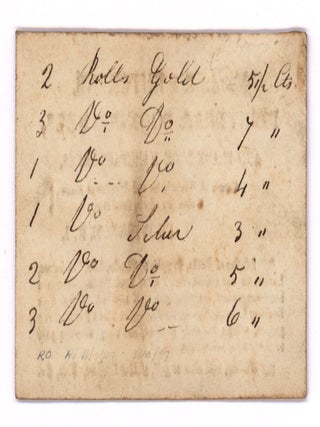 2 Rolls Gold 5½ Cts.
3 Do Do 7 "
1 Do Do 4 "
1 Do Silver 3 "
2 Do Do 5 "
3 Do Do 6 "